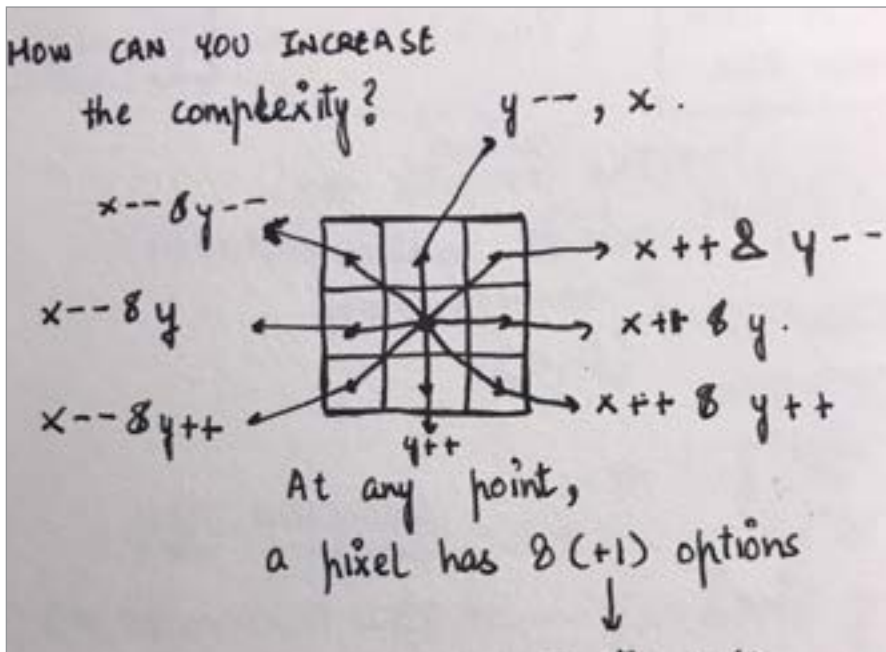 HOW CAN YOU INCREASE
the complexity?
y--, x.
x--&y--
x++ & y--
x--&y
x++ & y.
x--&y++
x++ & y++
y++
At any point,
a pixel has 8 (+1) options